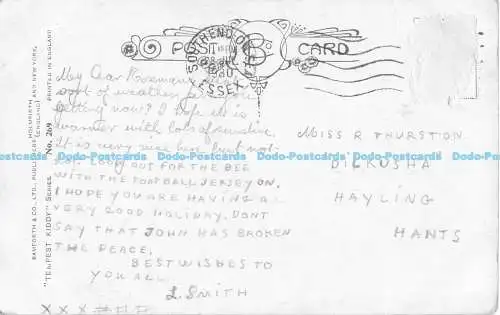 POST CARD
SOUTHEND-ON-SEA
ESSEX
My Dear Rosemary,
sort of weather
getting now? I hope it is
warmer with lots of sunshine
It is very nice here but not
hot. LOOK OUT FOR THE BEE
WITH THE FOOTBALL JERSEY ON.
I HOPE YOU ARE HAVING A
VERY GOOD HOLIDAY. DONT
SAY THAT JOHN HAS BROKEN
THE PEACE.
BEST WISHES TO
YOU ALL.
L. SMITH
X X X
MISS R THURSTON
DILKUSHA
HAYLING
HANTS
BAMFORTH & CO., LTD., PUBLISHERS, HOLMFIRTH AND NEW YORK.
(ENGLAND)
PRINTED IN ENGLAND
"TEMPEST KIDDY" SERIES No. 269
Dodo-Postcards Dodo-Postcards Dodo-Postcards Dodo-Postcards Dodo-Postcards